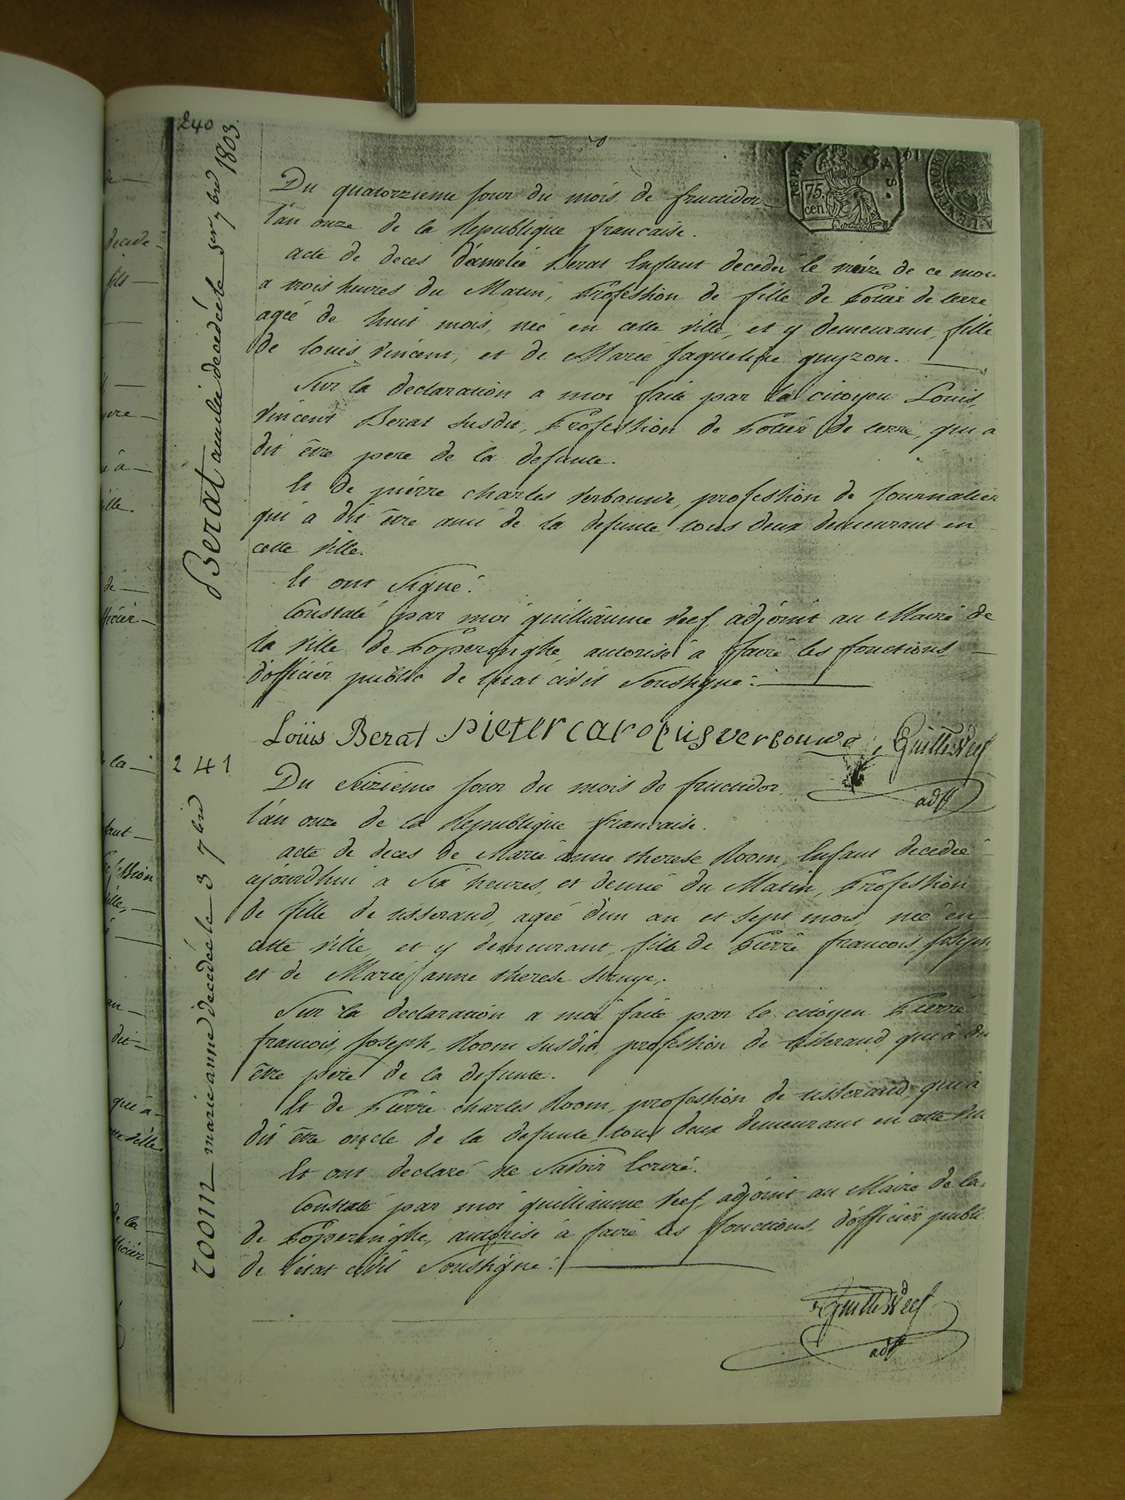 240
Berat amelie decedée le 1er 7bre 1803.
75.
cen
Du quatorzieme jour du mois de fructidor
l'an onze de la Republique francaise.
acte de deces d'amelie Berat Enfant decedée le treize de ce mois
a trois heures du Matin, Profession de fille de Potier de terre
agée de huit mois, née en cette ville, et y demeurant, fille
de louis Vincent, et de Marie Jaqueline guyzon.
Sur la declaration a moi faite par le citoyen Louis,
Vincent Berat susdit, Profession de Potier de terre, qui a
dit être pere de la defunte.
Et de pierre charles Verbauwe, profession de Journalier
qui a dit être ami de la defunte, tous deux demeurant en
cette Ville.
Et ont Signé.
Constaté par moi guilliaume Neef, adjoint au Maire de
la Ville de Poperinghe, autorisé a faire les fonctions
d'officier public de l'etat civil Soussigné.
Loüis Berat Pieter carolus verbouwe Guille Neef
adjt
241
room marie anne decedée le 3 7bre
Du Seizieme jour du mois de fructidor
l'an onze de la Republique francaise.
acte de deces de Marie anne therese Room, Enfant decedée
ajourdhui a Six heures, et demie du Matin, Profession
de fille de tisserand, agée d'un an et sept mois, née en
cette Ville, et y demeurant, fille de Pierre francois Joseph
et de Marie anne therese
Sur la declaration a moi faite par le citoyen Pierre
francois, Joseph, Room susdit, profession de tisserand, qui a dit
être pere de la defunte.
Et de Pierre charles Room, profession de tisserand, qui a
dit être oncle de la defunte, tous deux demeurant en cette Ville
Et ont declaré ne Savoir Ecrire.
Constaté par moi guilliaume Neef, adjoint au Maire de la
de Poperinghe, autorisé a faire les fonctions, d'officier public
de l'etat civil Soussigné.
Guille Neef
adjt